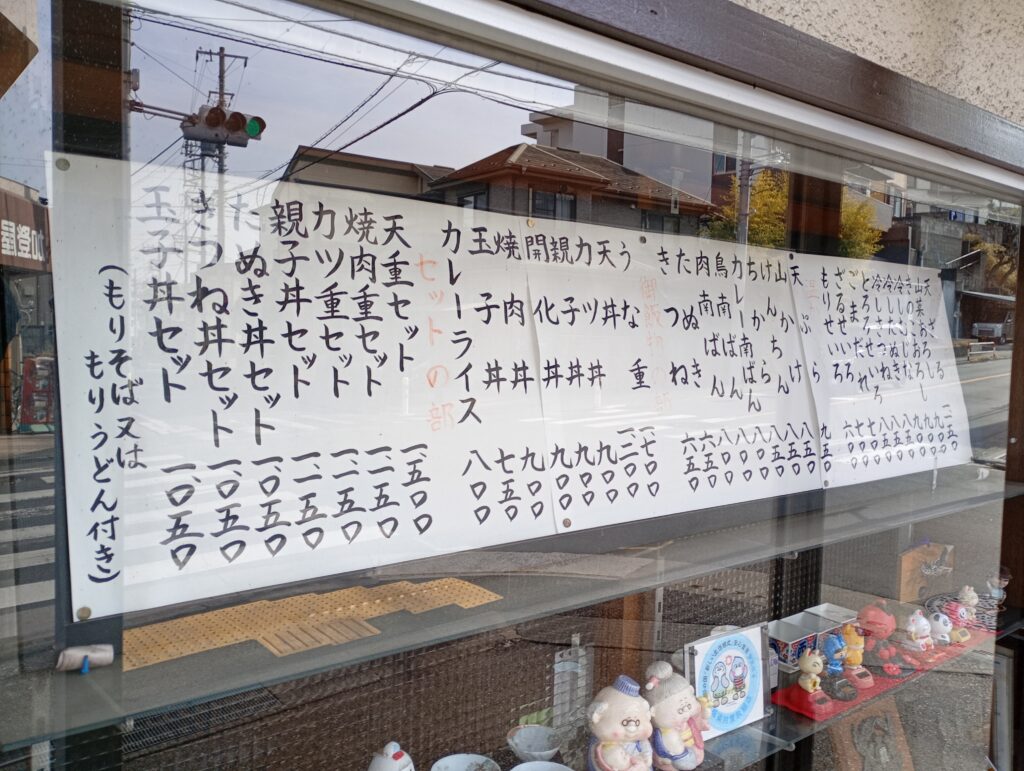 天ざる
山菜おろし 九〇〇
きのこおろし 九〇〇
冷したぬき
冷しきつね
ごまだれせいろ
ざるせいろ 七〇〇
もりせいろ 六〇〇
天ぷら 九五〇
山かけ 八五〇
けんちん 八五〇
ちから 八五〇
カレー南ばん 八〇〇
鳥南ばん 八〇〇
肉南ばん 八〇〇
たぬき 六五〇
きつね 六五〇
御飯物の部
うな重 一七〇〇
天丼
カツ丼 九〇〇
親子丼 九〇〇
開化丼 九〇〇
焼肉丼 九〇〇
玉子丼 七五〇
カレーライス 八〇〇
セットの部
天重セット 一、五〇〇
焼肉重セット 一、一五〇
カツ重セット 一、一五〇
親子丼セット 一、一五〇
たぬき丼セット 一、〇五〇
きつね丼セット 一、〇五〇
玉子丼セット 一、〇五〇
(もりそば又は
もりうどん付き)